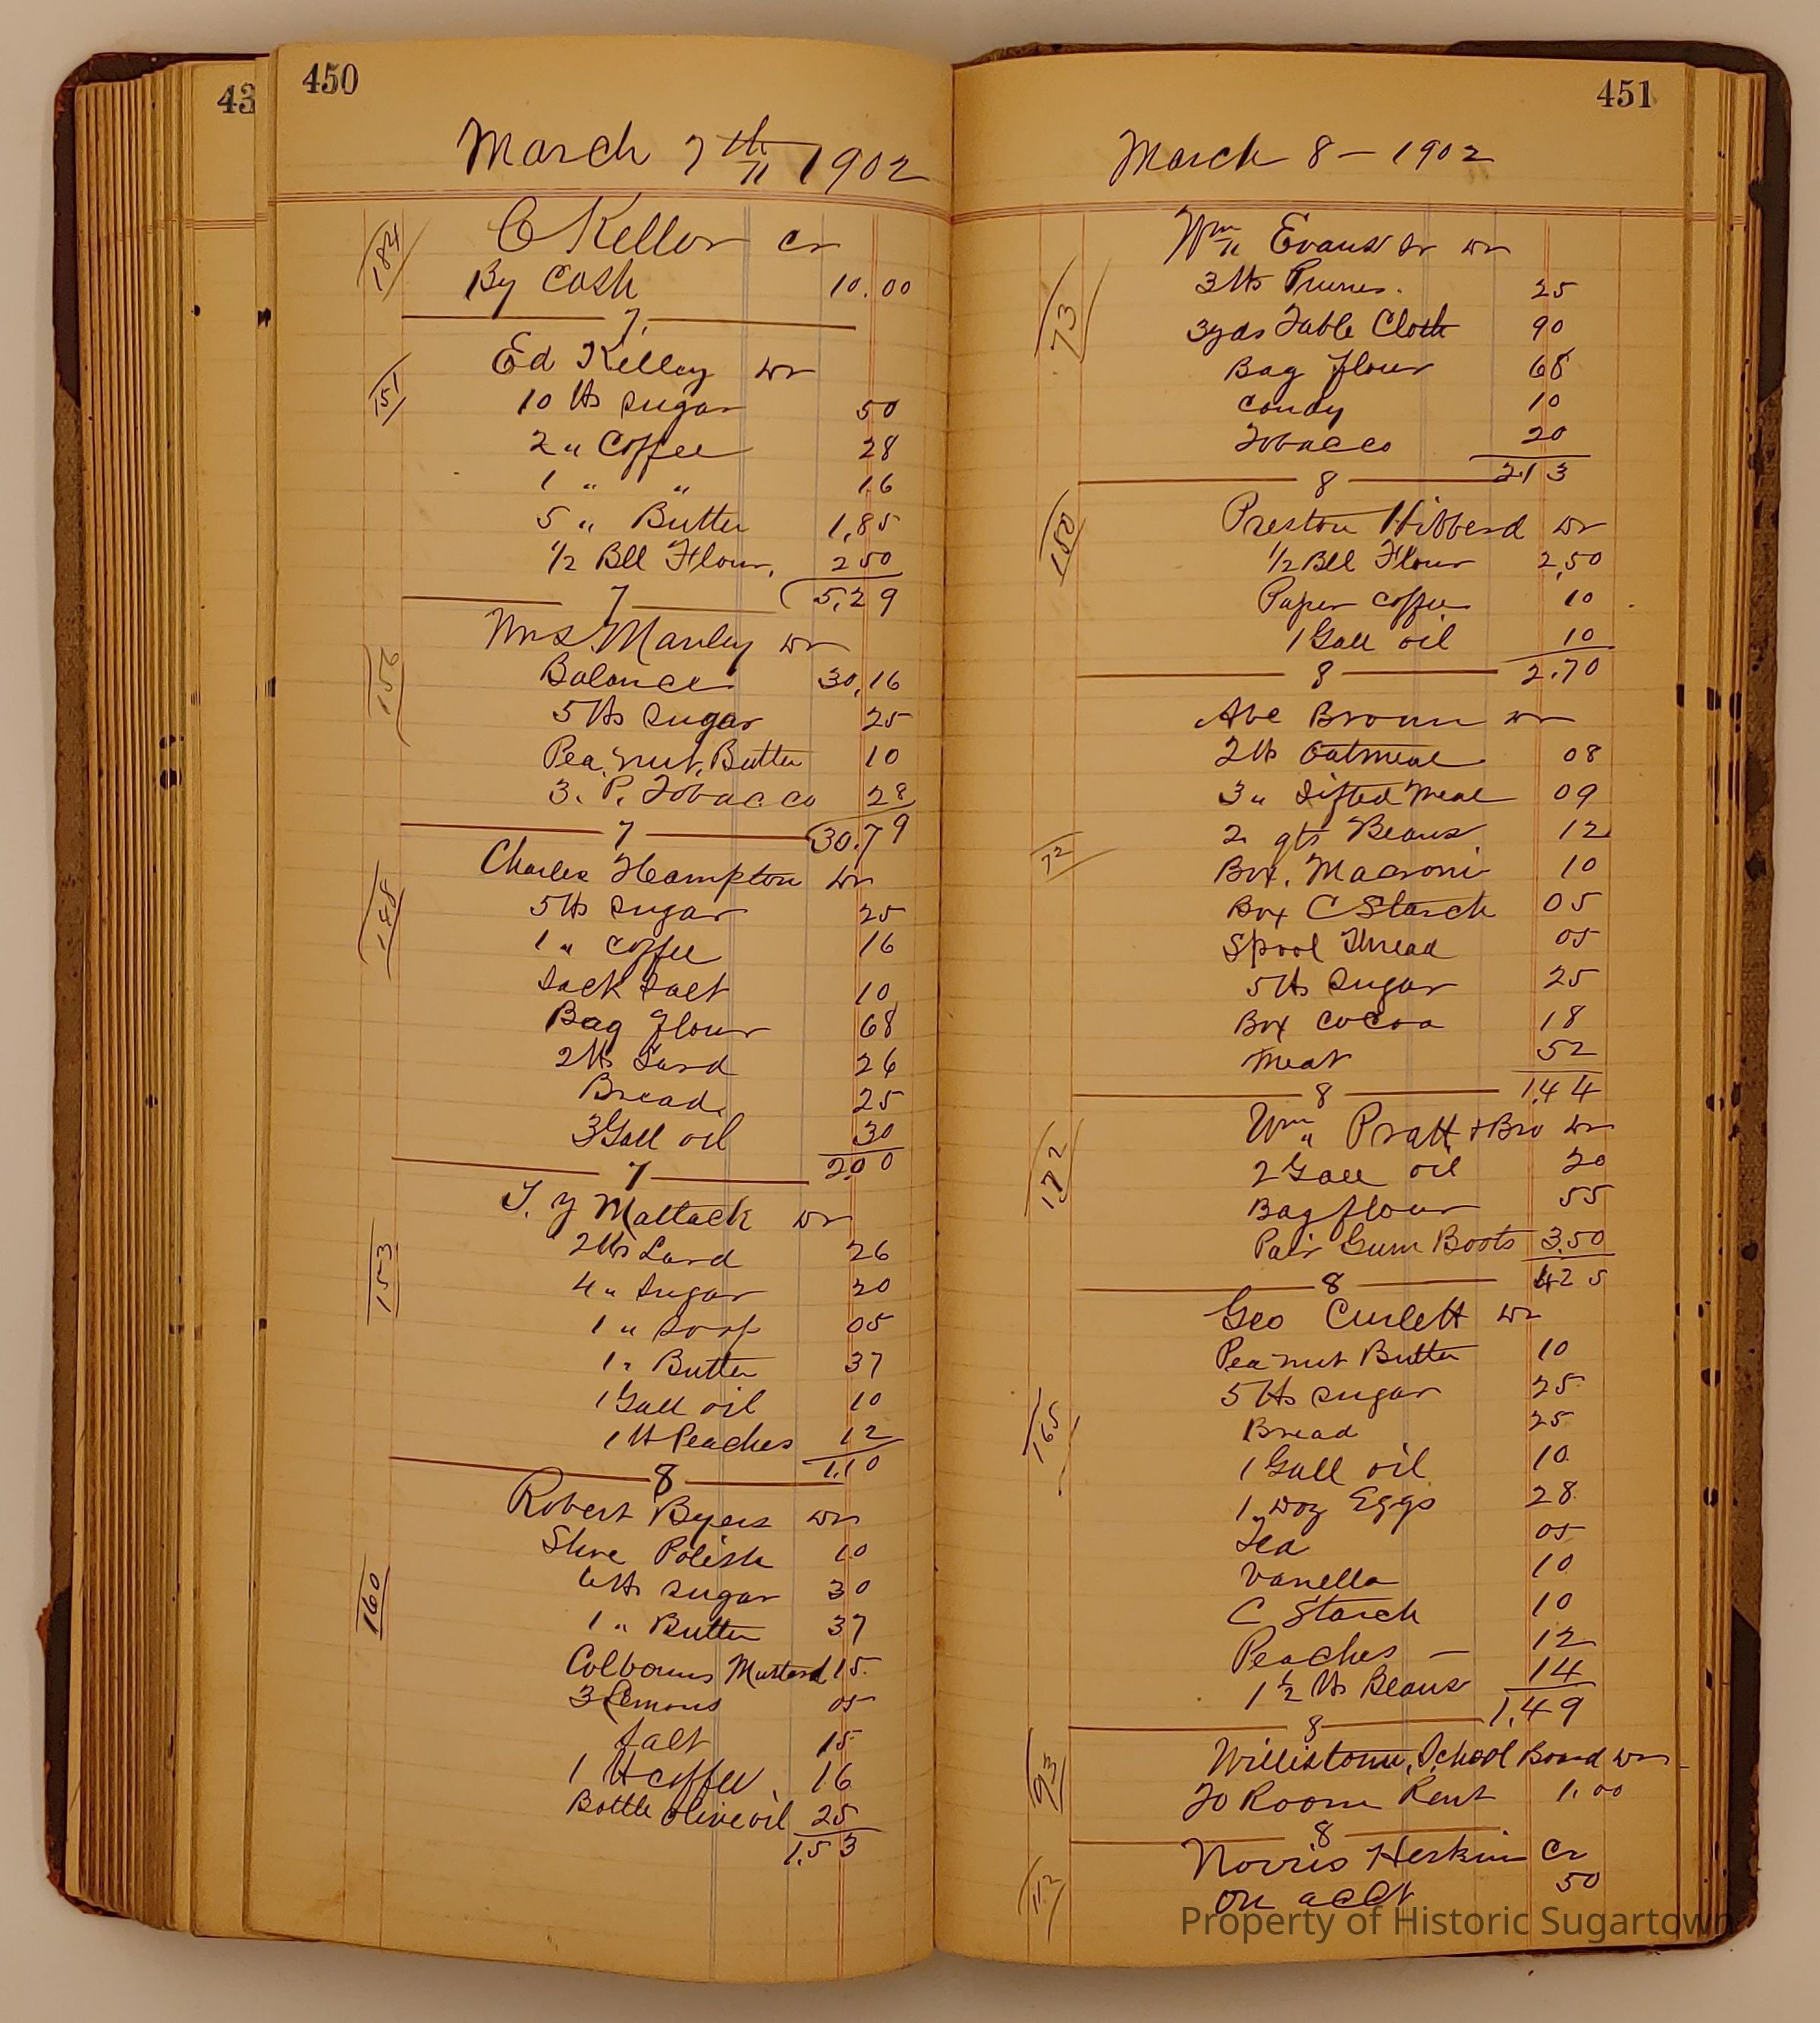 43
450
March 7th 1902
184
C Keller Cr
By Cash 10.00
7
151
Ed Kelley Dr
10 lbs Sugar 50
2 " Coffee 28
1 " " 16
5 " Butter 1,85
1/2 Bll Flour, 2 50
7 5,29
156
Mrs. Manley Dr
Balance 30,16
5 lbs Sugar 25
Pea nut Butter 10
3. P. Tobacco 28
7 30.79
148
Charles Hampton Dr
5 lbs Sugar 25
1 " Coffee 16
Sack Salt 10
Bag Flour 68
2 lbs Lard 26
Bread 25
3 Gall oil 30
7 2.00
153
T. Y Matlack Dr
2 lbs Lard 26
4 " Sugar 20
1 " Soap 05
1 " Butter 37
1 Gall oil 10
1 lb Peaches 12
8 1.10
160
Robert Byers Dr
Shoe Polish 10
6 lbs Sugar 30
1 " Butter 37
Colbourns Mustard 15
3 Lemons 05
Salt 15
1 lb Coffee 16
Bottle olive oil 25
1.53
451
March 8 - 1902
73
Wm Evans Sr Dr
3 lbs Prunes. 25
3 yds Table Cloth 90
Bag flour 68
Candy 10
Tobacco 20
8 2.13
150
Preston Hibberd Dr
1/2 Bll Flour 2,50
Paper Coffee 10
1 Gall oil 10
8 2.70
72
Abe Brown Dr
2 lb Oatmeal 08
3 " Sifted Meal 09
2 qts Beans 12
Box. Macroni 10
Box C Starch 05
Spool Thread 05
5 lbs Sugar 25
Box Cocoa 18
Meat 52
8 1.44
172
Wm " Pratt & Bro Dr
2 Gall oil 20
Bag flour 55
Pair Gum Boots 3.50
8 4 25
165
Geo Curlett Dr
Pea nut Butter 10
5 lbs Sugar 25
Bread 25
1 Gall oil 10
1 Doz Eggs 28
Tea 05
Vanella 10
C Starch 10
Peaches - 12
1 1/2 lbs Beans 14
8 1.49
93
Willistown, School Board Dr
To Room Rent 1.00
8
112
Norris Herkin Cr
on acct 50
Property of Historic Sugartown